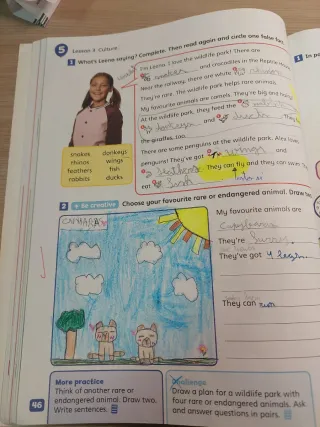 5 Lesson 3 Culture
1 What's Leena saying? Complete. Then read again and circle one false fact.
I'm Leena. I love the wildlife park! There are
snakes and crocodiles in the Reptile House.
Near the railway, there are white rhinos.
They're rare. The wildlife park helps rare animals.
My favourite animals are camels. They're big and
At the wildlife park, they feed the rabbits
donkeys and ducks. They
the giraffes, too.
There are some penguins at the wildlife park. Alex loves
penguins! They've got wings and
feathers. They can fly and they can swim. They
eat fish
snakes donkeys
rhinos wings
feathers fish
rabbits ducks
2 Be creative Choose your favourite rare or endangered animal. Draw
My favourite animals are
They're furry.
They've got 4 legs.
They can run
More practice
Think of another rare or
endangered animal. Draw two.
Write sentences.
Challenge
Draw a plan for a wildlife park with
four rare or endangered animals. Ask
and answer questions in pairs.
46
1 In pa